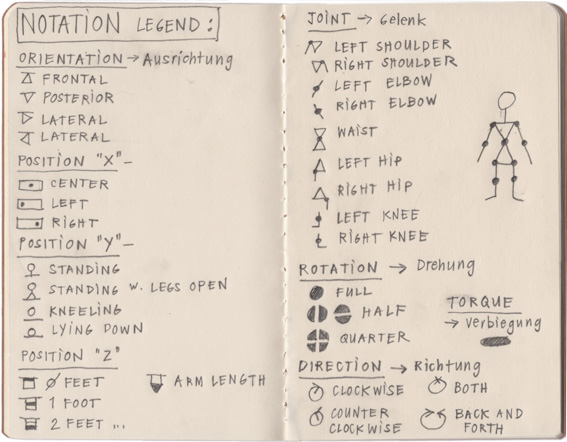 NOTATION LEGEND:
ORIENTATION → Ausrichtung
FRONTAL
POSTERIOR
LATERAL
LATERAL
POSITION "X" –
CENTER
LEFT
RIGHT
POSITION "Y" –
STANDING
STANDING W. LEGS OPEN
KNEELING
LYING DOWN
POSITION "Z"
Ø FEET
ARM LENGTH
1 FOOT
2 FEET ...
JOINT → Gelenk
LEFT SHOULDER
RIGHT SHOULDER
LEFT ELBOW
RIGHT ELBOW
WAIST
LEFT HIP
RIGHT HIP
LEFT KNEE
RIGHT KNEE
ROTATION → Drehung
FULL
HALF
QUARTER
TORQUE
→ Verbiegung
DIRECTION → Richtung
CLOCKWISE
BOTH
COUNTER
CLOCKWISE
BACK AND
FORTH